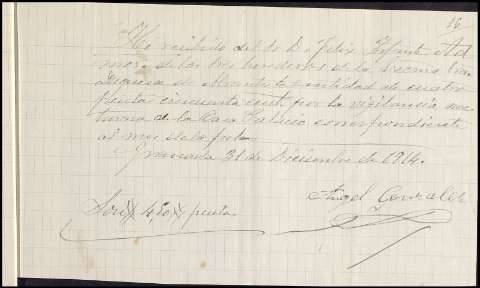 16
He recibido del Sr. D. Felix Infante Ad
mor. de los herederos de la Excma. Sra.
Duquesa de la cantidad de cuatro
pesetas cincuenta cents. por la vigilancia noc
turna de la Casa Palacio correspondiente
al mes de la fecha
Granada 31 de Diciembre de 1914.
Angel Gonzalez
Son 4,50 pesetas.